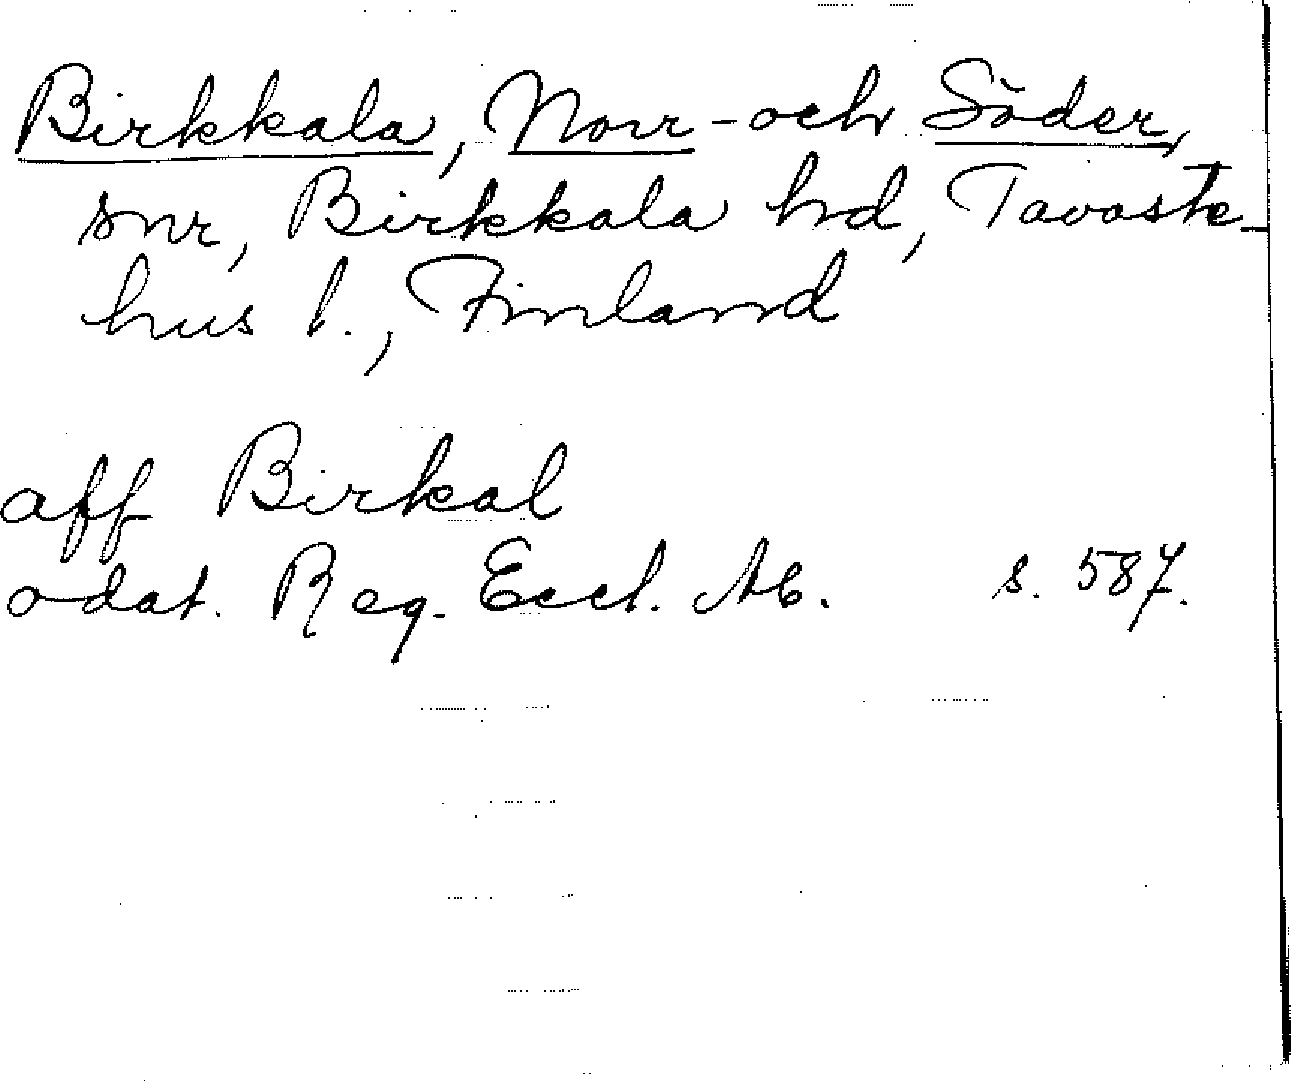 Birkkala, Norr- och Söder,
snr, Birkkala hd, Tavaste-
hus l., Finland
aff Birkal
odat. Reg. Eccl. Ab. s. 587.